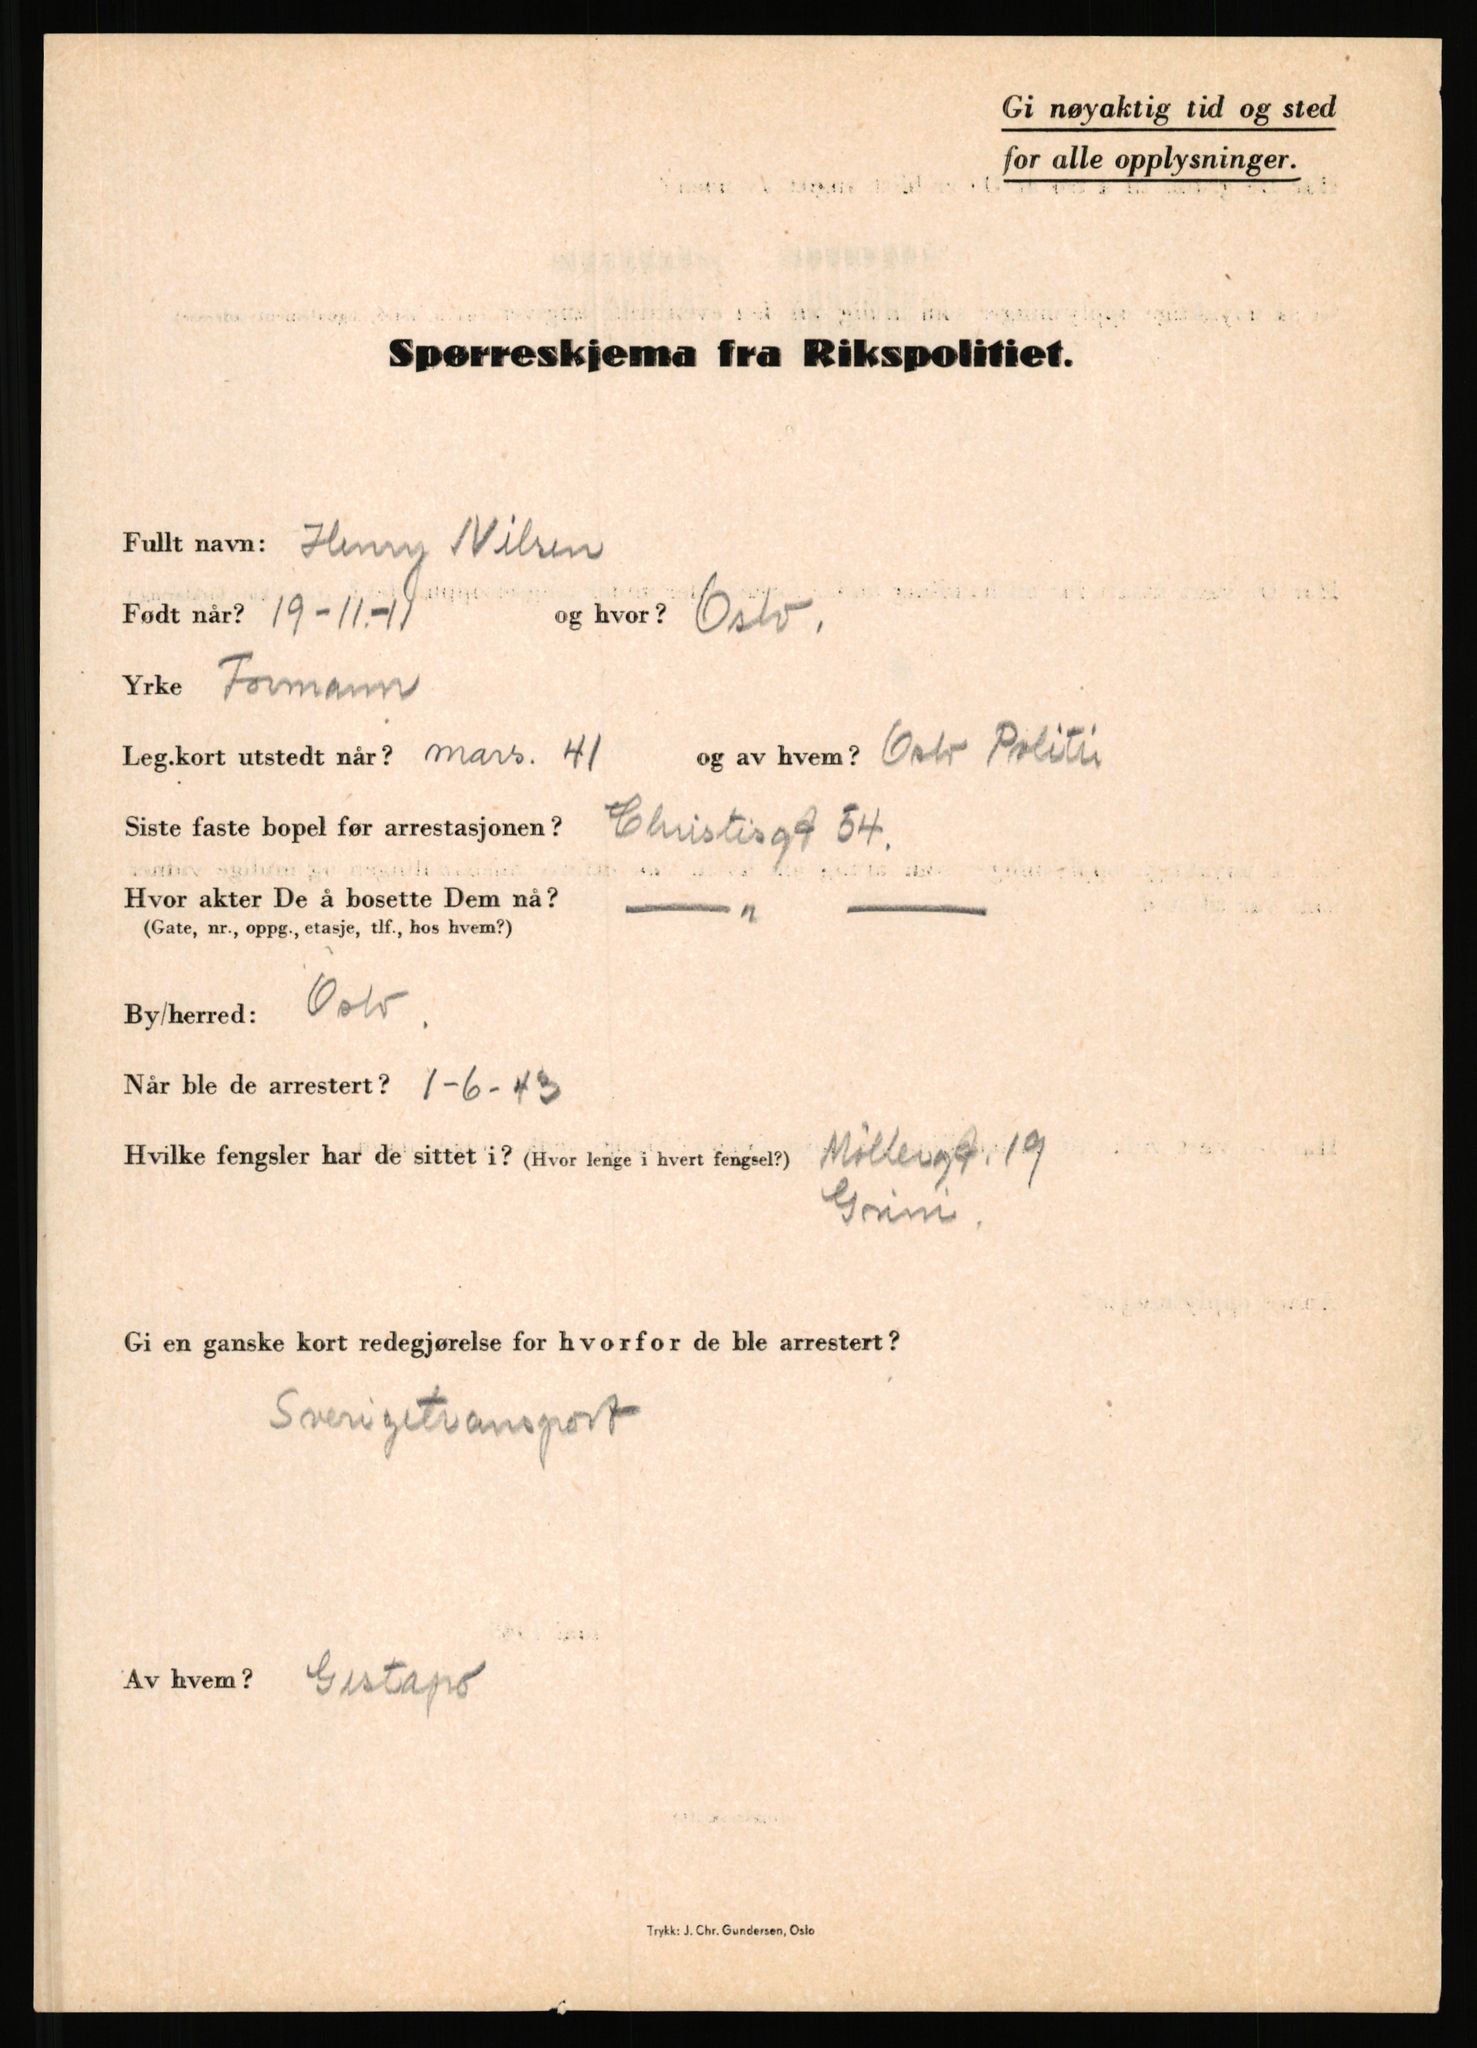 Gi nøyaktig tid og sted
for alle opplysninger.
Spørreskjema fra Rikspolitiet.
Fullt navn: Henry Nilsen
Født når? 19-11-11 og hvor? Oslo.
Yrke Formann
Leg.kort utstedt når? mars. 41 og av hvem? Oslo Politi
Siste faste bopel før arrestasjonen? Christisgt 54.
Hvor akter De å bosette Dem nå? — " —
(Gate, nr., oppg., etasje, tlf., hos hvem?)
By/herred: Oslo.
Når ble de arrestert? 1-6-43
Hvilke fengsler har de sittet i? (Hvor lenge i hvert fengsel?) Möllergt. 19
Grini.
Gi en ganske kort redegjørelse for hvorfor de ble arrestert?
Sverigetransport
Av hvem? Gestapo
Trykk: J. Chr. Gundersen, Oslo